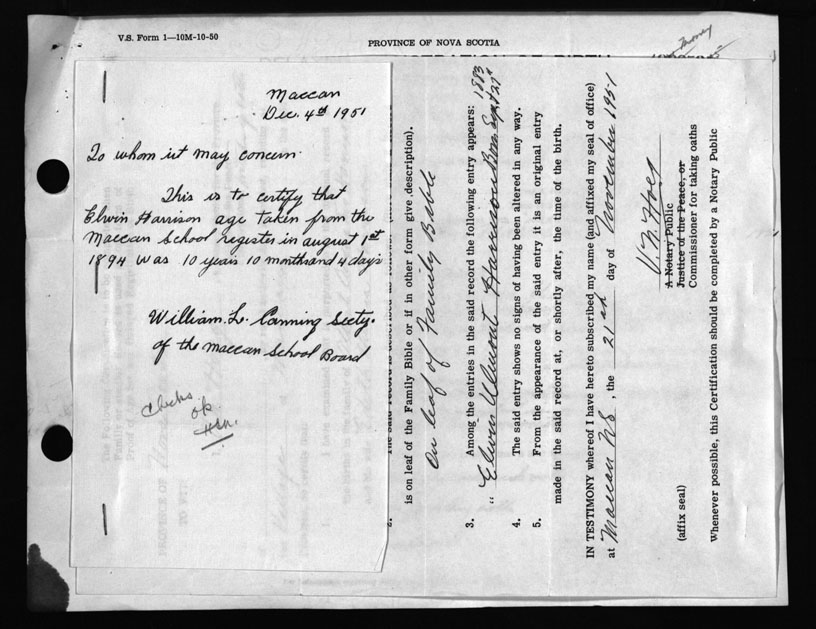 V.S. Form 1—10M-10-50
PROVINCE OF NOVA SCOTIA
money
Maccan
Dec. 4th 1951
To whom it may concern
This is to certify that
Elvin Harrison age taken from the
Maccan School register in august 1st
1894 was 10 years 10 months and 4 days
William L. Canning Secty.
of the Maccan School Board
Checks
ok
2.
is on leaf of the Family Bible or if in other form give description).
On leaf of Family Bible
3. Among the entries in the said record the following entry appears: 1883
" Elvin Almont Harrison Born Sept 27th
4. The said entry shows no signs of having been altered in any way.
5. From the appearance of the said entry it is an original entry
made in the said record at, or shortly after, the time of the birth.
IN TESTIMONY whereof I have hereto subscribed my name (and affixed my seal of office)
at Maccan NS, the 21st day of November 1951
A Notary Public
Justice of the Peace, or
Commissioner for taking oaths
(affix seal)
Whenever possible, this Certification should be completed by a Notary Public